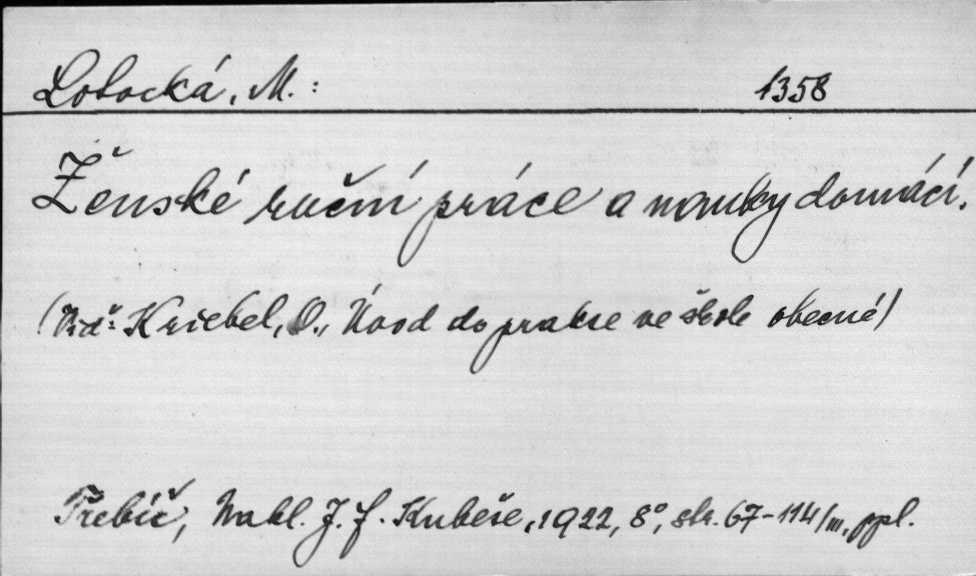 Lotocká, M.: 1358
Ženské ruční práce a nauky domácí.
(Viď: Kriebel, O., Úvod do prakse ve škole obecné)
Třebíč, Nakl. J. F. Kubeše, 1922, 8°, str. 67-114/III, ppl.